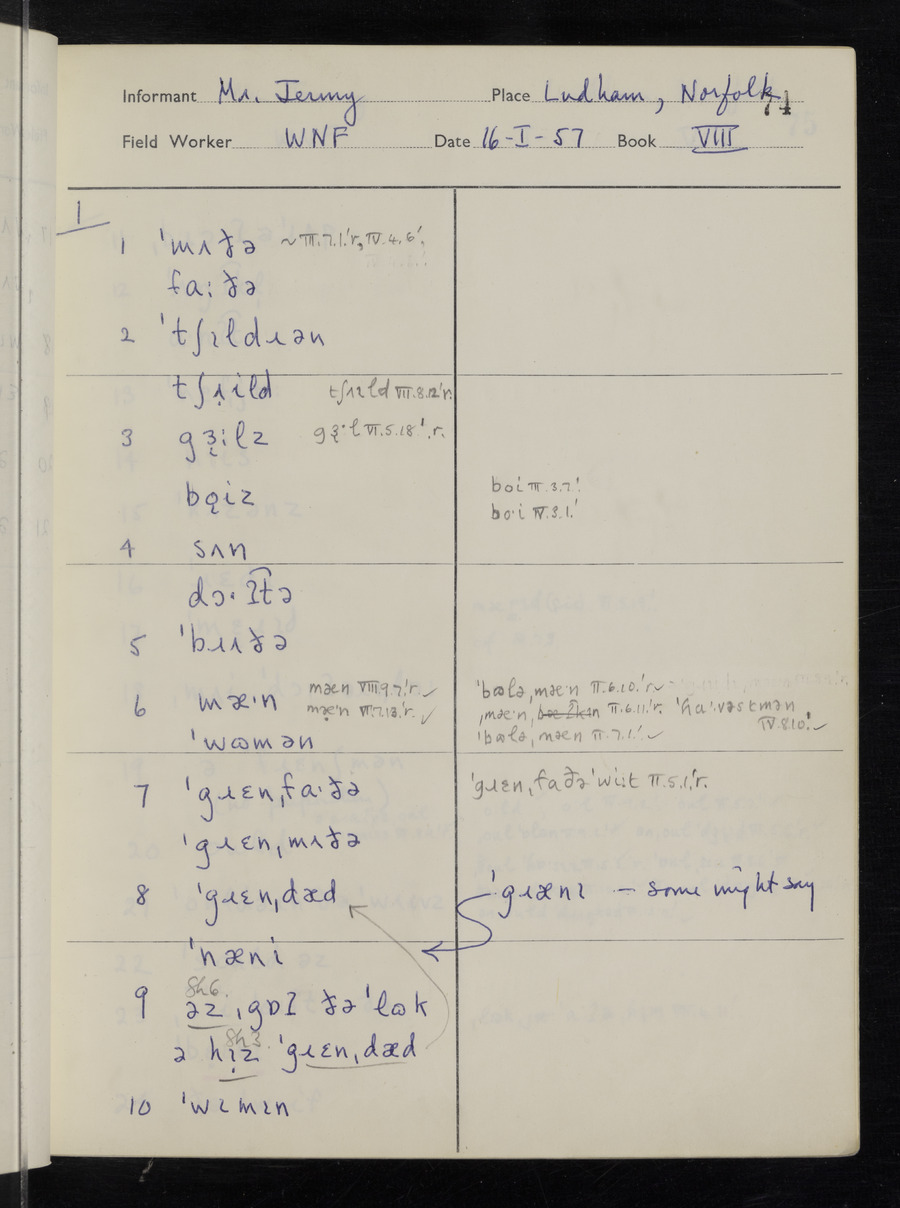 Informant Mr. Jermy Place Ludham, Norfolk 74
Field Worker WNF Date 16-I-57 Book VIII
1
1 ˈmʌðə ~ III.7.1.ˈr, IV.4.6ˈ.
fa:ðə
2 ˈtʃɪldɹən
tʃʌ̣ild tʃʌɪld VII.8.12ˈr.
3 gɜ̣:lz gɜ·l VI.5.18ˈ.r.
bọiz boi III.3.7.ˈ
bo·i IV.9.1.ˈ
4 sʌn
dɔ·ʔ͡tə
5 ˈbɹʌðə
6 mæ·n mæn VIII.9.7.ˈr. ✓ ˈbɷlə,mæ·n II.6.10.ˈr ✓
mæ·n VII.7.13.ˈr. ✓ ,mæ·n, II.6.11.ˈr. ˈha·vəstmən IV.8.10.ˈ ✓
ˈwɷmən ˈbɷlə,mæn II.7.1.ˈ ✓
7 ˈgɹɛn,fa·ðə ˈgɹɛn,faðəˈwi:t II.5.1.ˈr.
ˈgɹɛn,mʌðə
8 ˈgɹɛn,dæd ˈgɹænɪ – some might say
ˈnæni
9 8h6. əz ,gɒʔ ðəˈlɷk
ə 8h3. hɪ̣z ˈgɹɛn,dæd
10 ˈwɪmɪn